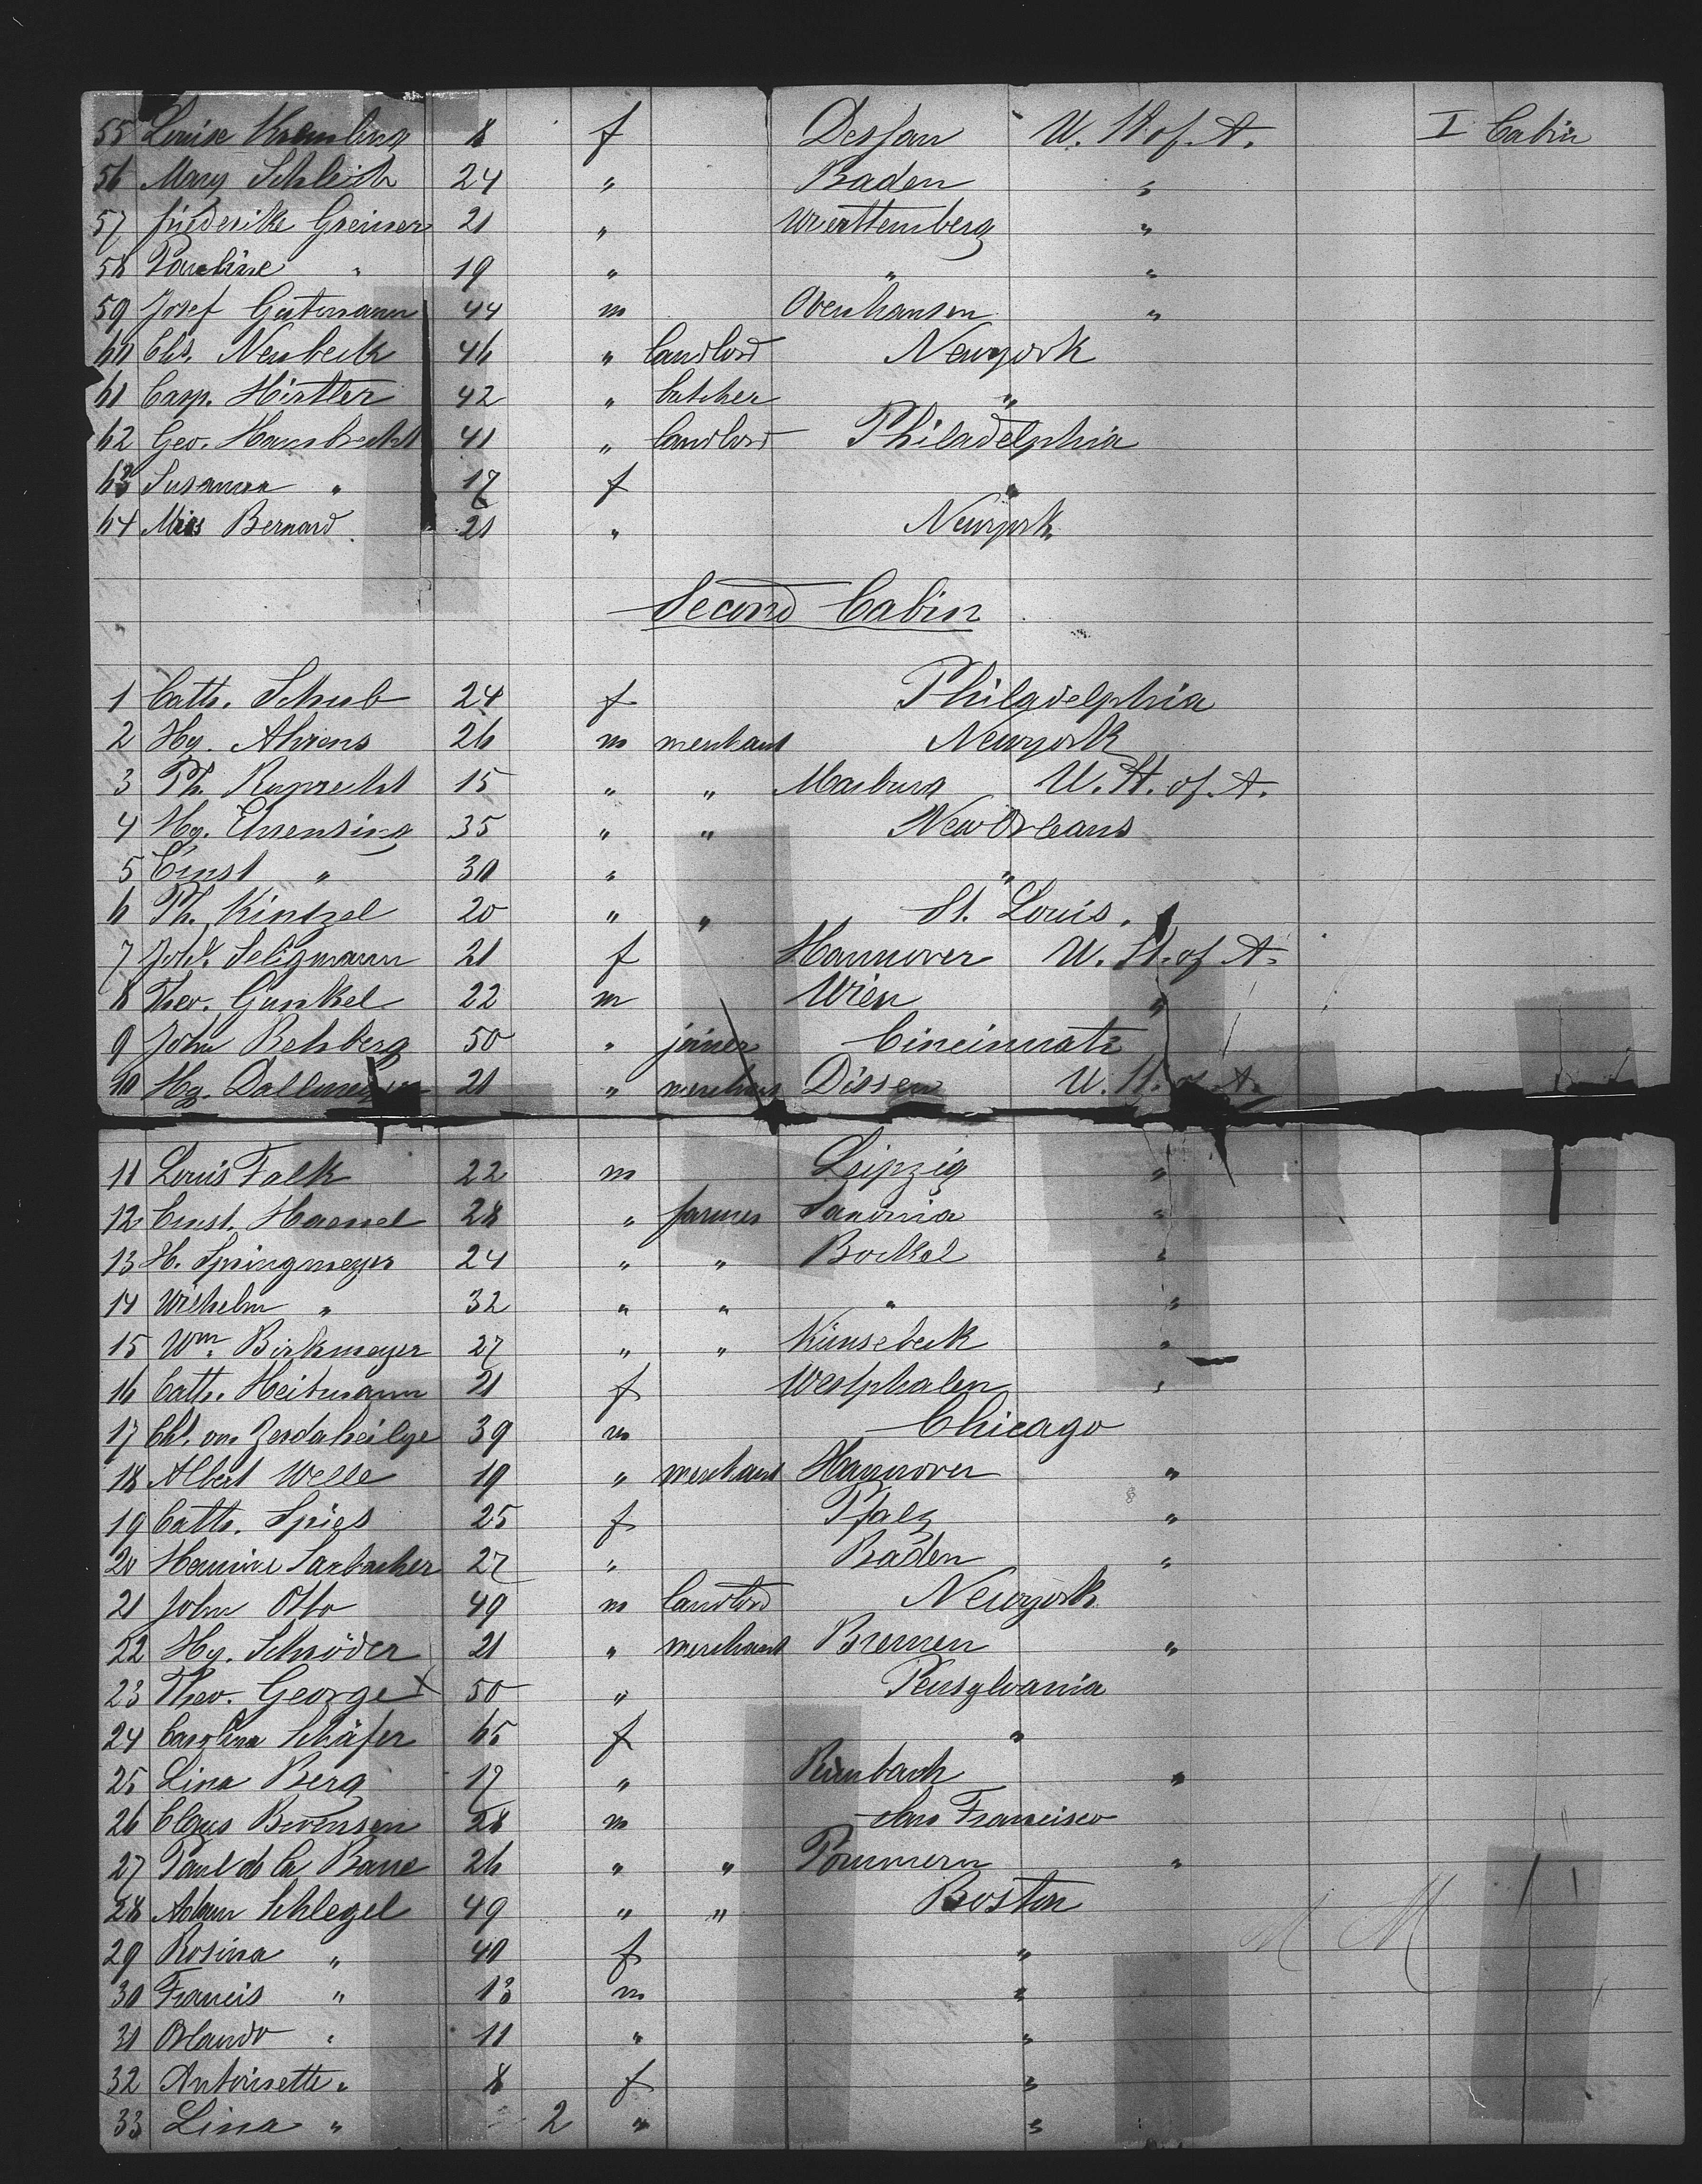 55 Louise Kremling 8 f Dessau U. St. of A. I Cabin
56 Mary Schleich 24 " Baden "
57 Friederike Greiner 21 " Württemberg "
58 Pauline " 19 " " "
59 Josef Gutmann 44 m Obenhausen "
60 Chs. Neubeck 46 " landlord Newyork
61 Casp. Hirtler 42 " butcher "
62 Geo. Hambrecht 41 " landlord Philadelphia
63 Susanna " 17 f "
64 Miss Bernard 21 " Newyork
Second Cabin
1 Cath. Schub 24 f Philadelphia
2 Hy. Ahrens 26 m merchant Newyork
3 Ph. Ruprecht 15 " " Marburg U. St. of A.
4 Hy. Ehrensing 35 " " New Orleans
5 Ernst " 30 " "
6 Ph. Kintzel 20 " " St. Louis.
7 Joh. Seligmann 21 f Hannover U. St. of A.
8 Theo. Gunkel 22 m Wien "
9 John Rehberg 50 " joiner Cincinnati
10 Hy. 21 " merchant Dissen U. St. of A.
11 Louis Falk 22 m Leipzig "
12 Ernst. Haenel 28 " farmer Saxonia "
13 H. Springmeyer 24 " " Bockel "
14 Wilhelm " 32 " " " "
15 Wm. Birkmeyer 27 " " Künsebeck "
16 Cath. Heitmann 21 f Westphalen "
17 Chl. von 39 m Chicago
18 Albert Welle 19 " merchant Hannover "
19 Cath. Spies 25 f Pfalz "
20 Hermine Sarbacher 27 " Baden "
21 John Otto 49 m landlord Newyork
22 Hy. Schröder 21 " merchant Bremen "
23 Theo. George x 50 " Pensylvania
24 Carolina Schäfer 65 f "
25 Lina Berg 17 " Rimbach "
26 Claus Bevensen 28 m San Francisco
27 Paul de la Barre 26 " " Pommern "
28 Adam Schlegel 49 " " Boston
29 Rosina " 40 f "
30 Francis " 13 m "
31 Orlando " 11 " "
32 Antoinette " 8 f "
33 Lina " 2 " "